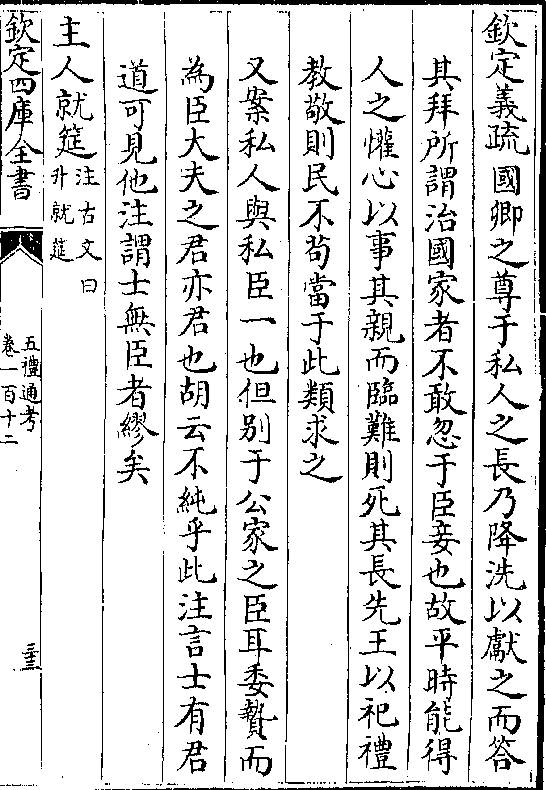 欽定義疏國卿之尊于私人之長乃降洗以獻之而答
其拜所謂治國家者不敢忽于臣妾也故平時能得
人之懽心以事其親而臨難則死其長先王以祀禮
教敬則民不苟當于此類求之
又案私人與私臣一也但别于公家之臣耳委贄而
為臣大夫之君亦君也胡云不純乎此注言士有君
道可見他注謂士無臣者繆矣
主人就筵注古文曰
升就筵
欽定四庫全書
五禮通考
卷一百十二
三十三